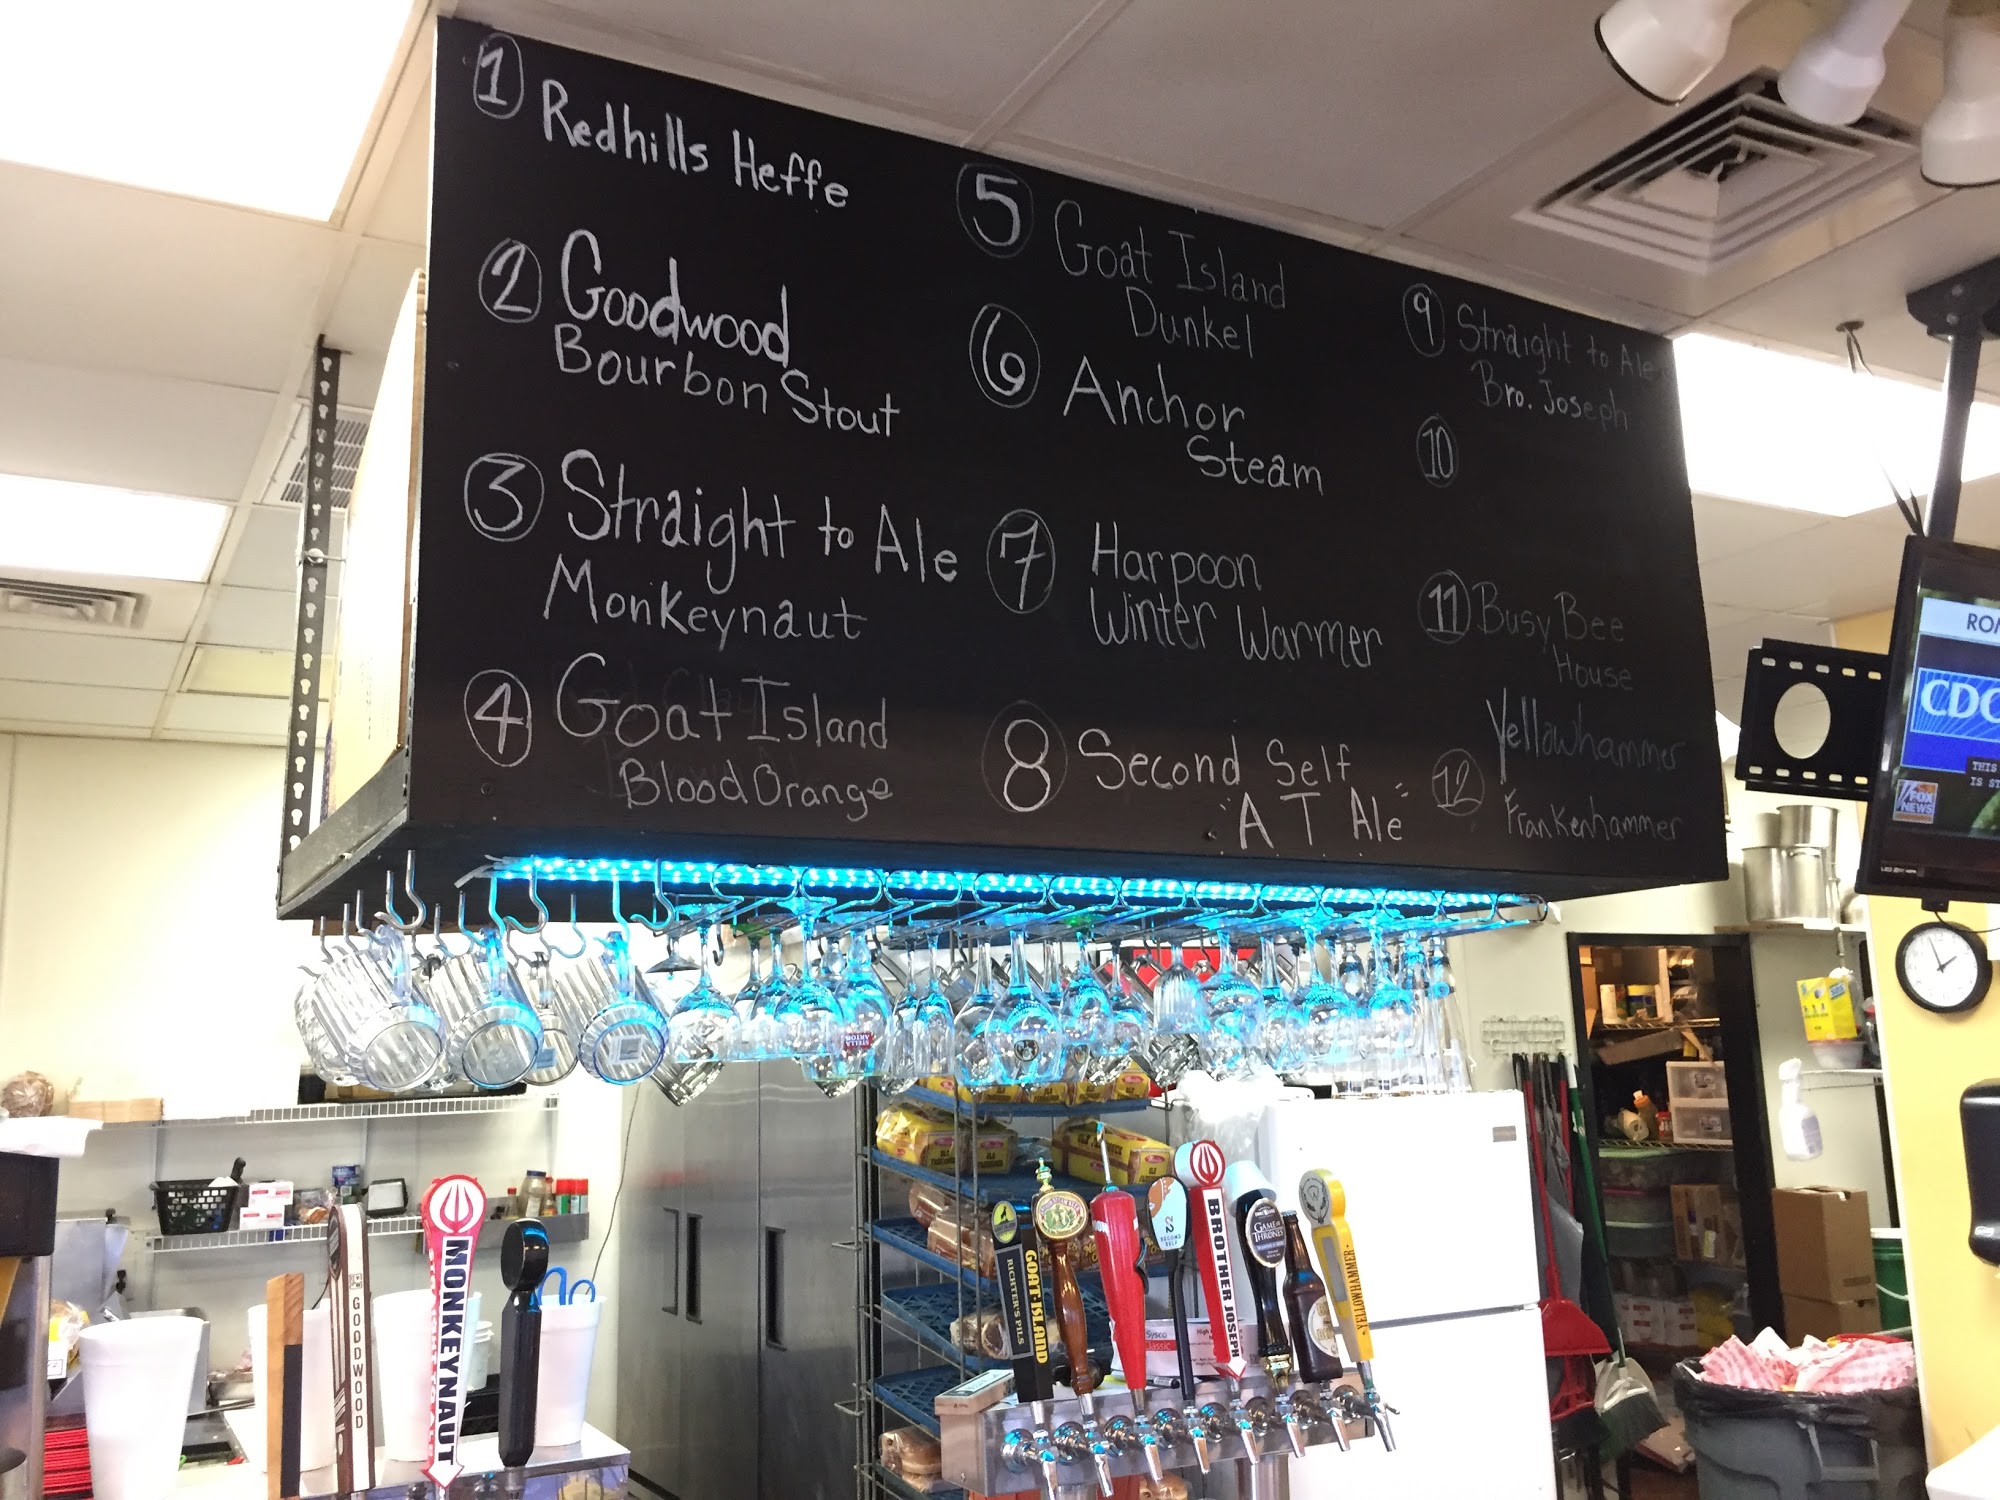 1 Redhills Heffe
2 Goodwood
Bourbon Stout
3 Straight to Ale
Monkeynaut
4 Goat Island
Blood Orange
5 Goat Island
Dunkel
6 Anchor
Steam
7 Harpoon
Winter Warmer
8 Second Self
"A T Ale"
9 Straight to Ale
Bro. Joseph
10
11 Busy Bee
House
12 Yellowhammer
Frankenhammer
CDC
THIS
IS ST
FOX
NEWS
STELLA
ARTOIS
GOODWOOD
MONKEYNAUT
GOAT·ISLAND
RICHTER'S PILS
2
SECOND
SELF
BROTHER JOSEPH
GAME OF
THRONES
·YELLOWHAMMER·
Sysco
Classic